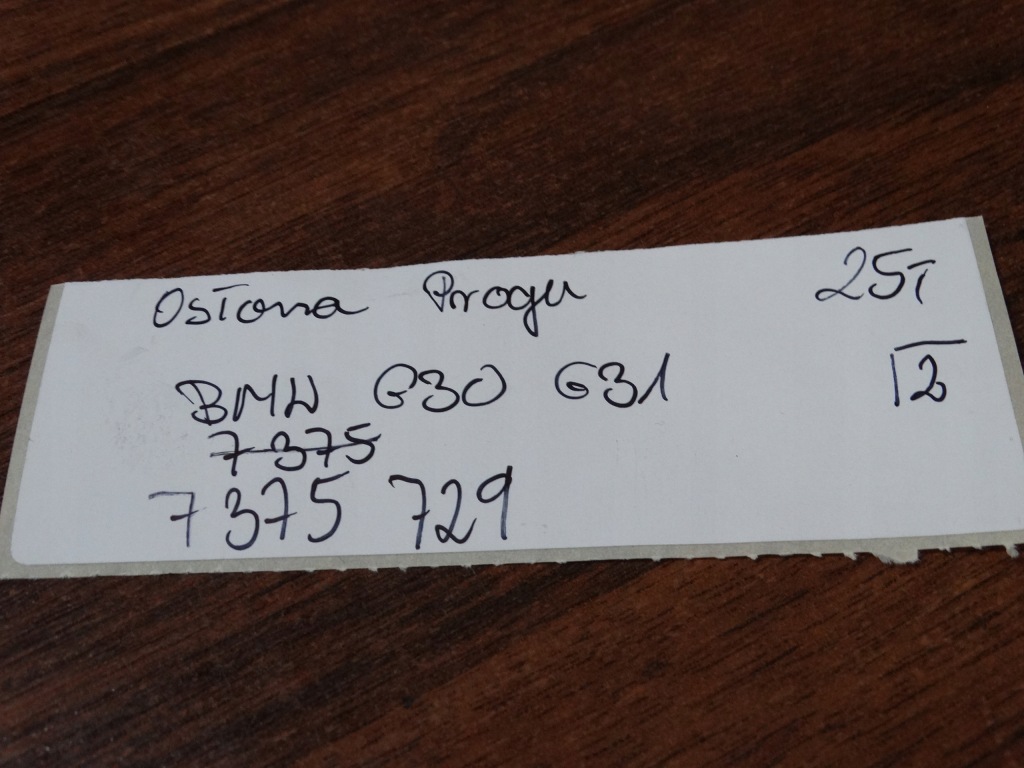 Osłona Progu 25T
BMW G30 G31 12
7375
7375 729